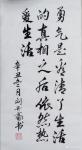 勇气是看清了生活
的真相之后依然热
爱生活
辛丑三月刘开尚书